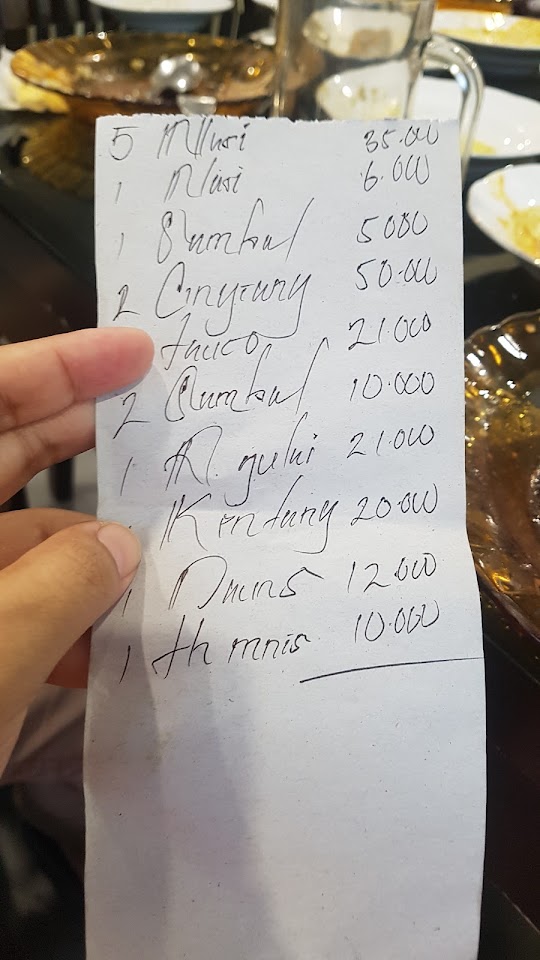 5 Nasi 35.000
1 Nasi 6.000
1 Sambal 5000
2 50.000
Tauco 21.000
2 Sambal 10.000
1 gulai 21.000
Kentang 20.000
1 12.000
1 th mnis 10.000